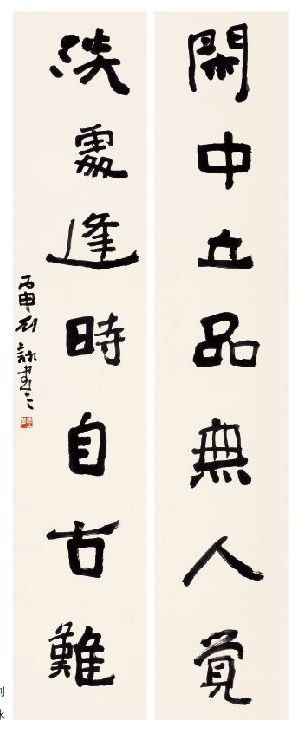 閑中立品無人覺
淡處逢時自古難
丙申刘詠書之